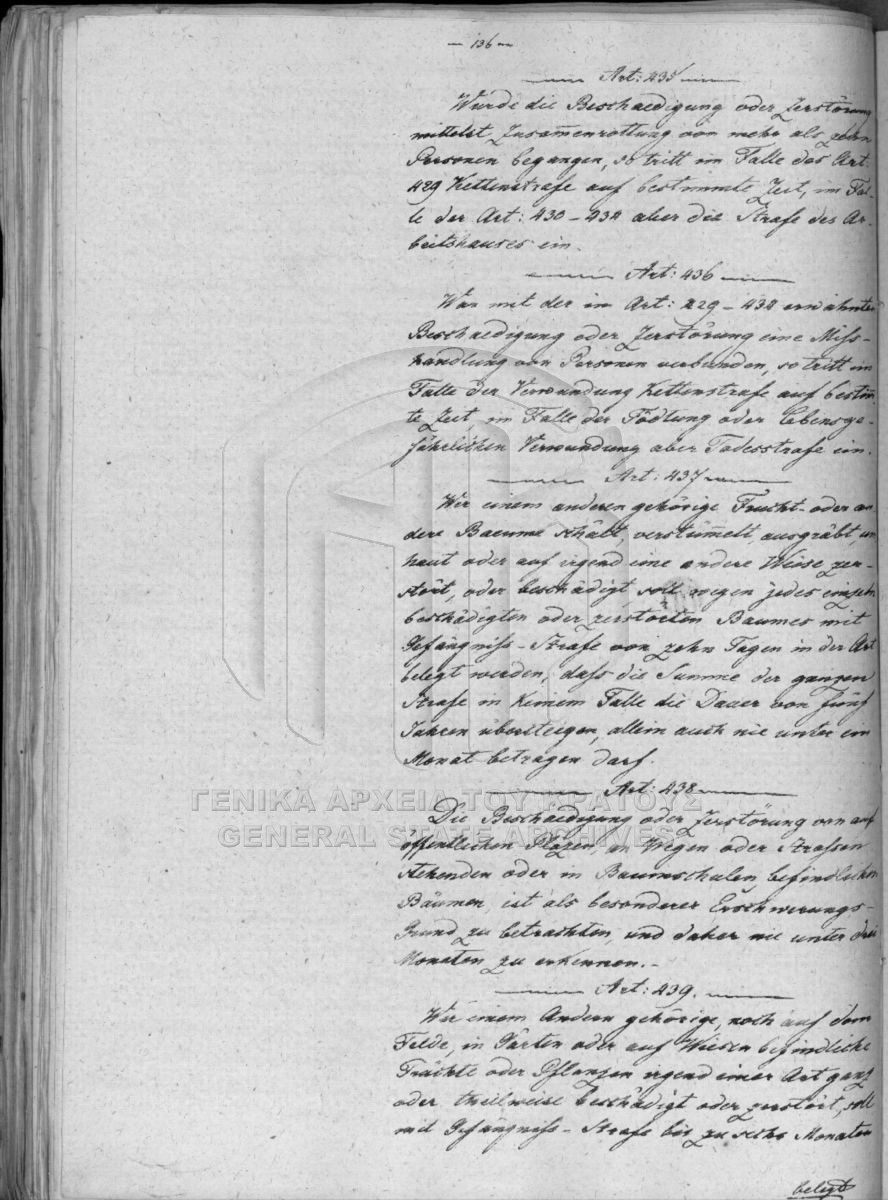 — 136 —
Art: 435
Wurde die Beschaedigung oder Zerstörung
mittelst Zusam̄enrottung von mehr als zehn
Personen begangen, so tritt im Falle des Art.
429 Kettenstrafe auf bestimmte Zeit, im Fal-
le der Art: 430 – 434 aber die Strafe des Ar-
beitshauses ein.
Art: 436
War mit der im Art: 429 – 434 erwähnten
Beschaedigung oder Zerstörung eine Miss-
handlung von Personen verbunden, so tritt im
Falle der Verwundung Kettenstrafe auf bestim̄-
te Zeit, im Falle der Tödtung oder lebensge-
fährlichen Verwundung aber Todesstrafe ein.
Art: 437
Wer einem anderen gehörige Frucht- oder an-
dere Baeume schält, verstüm̄elt, ausgräbt, um
haut oder auf irgend eine andere Weise zer-
stört, oder beschädigt, soll wegen jedes einzeln
beschädigten oder zerstörten Baumes mit
Gefängniss-Strafe von zehn Tagen in der Art
belegt werden, dass die Summe der ganzen
Strafe in keinem Falle die Dauer von fünf
Jahren übersteigen, allein auch nie unter ein
Monat betragen darf.
Art: 438
Die Beschaedigung oder Zerstörung von auf
öffentlichen Pläzen, an Wegen oder Strassen
stehenden oder in Baumschulen befindlichen
Bäumen, ist als besonderer Erschwerungs-
Grund zu betrachten, und daher nie unter drei
Monaten zu erkennen.-
Art: 439.
Wer einem Andern gehörige, noch auf dem
Felde, in Gärten oder auf Wiesen befindliche
Früchte oder Pflanzen irgend einer Art ganz
oder theilweise beschädigt oder zerstört, soll
mit Gefängniss-Strafe bis zu sechs Monaten
belegt
ΓΕΝΙΚΑ ΑΡΧΕΙΑ ΤΟΥ ΚΡΑΤΟΥΣ
GENERAL STATE ARCHIVES